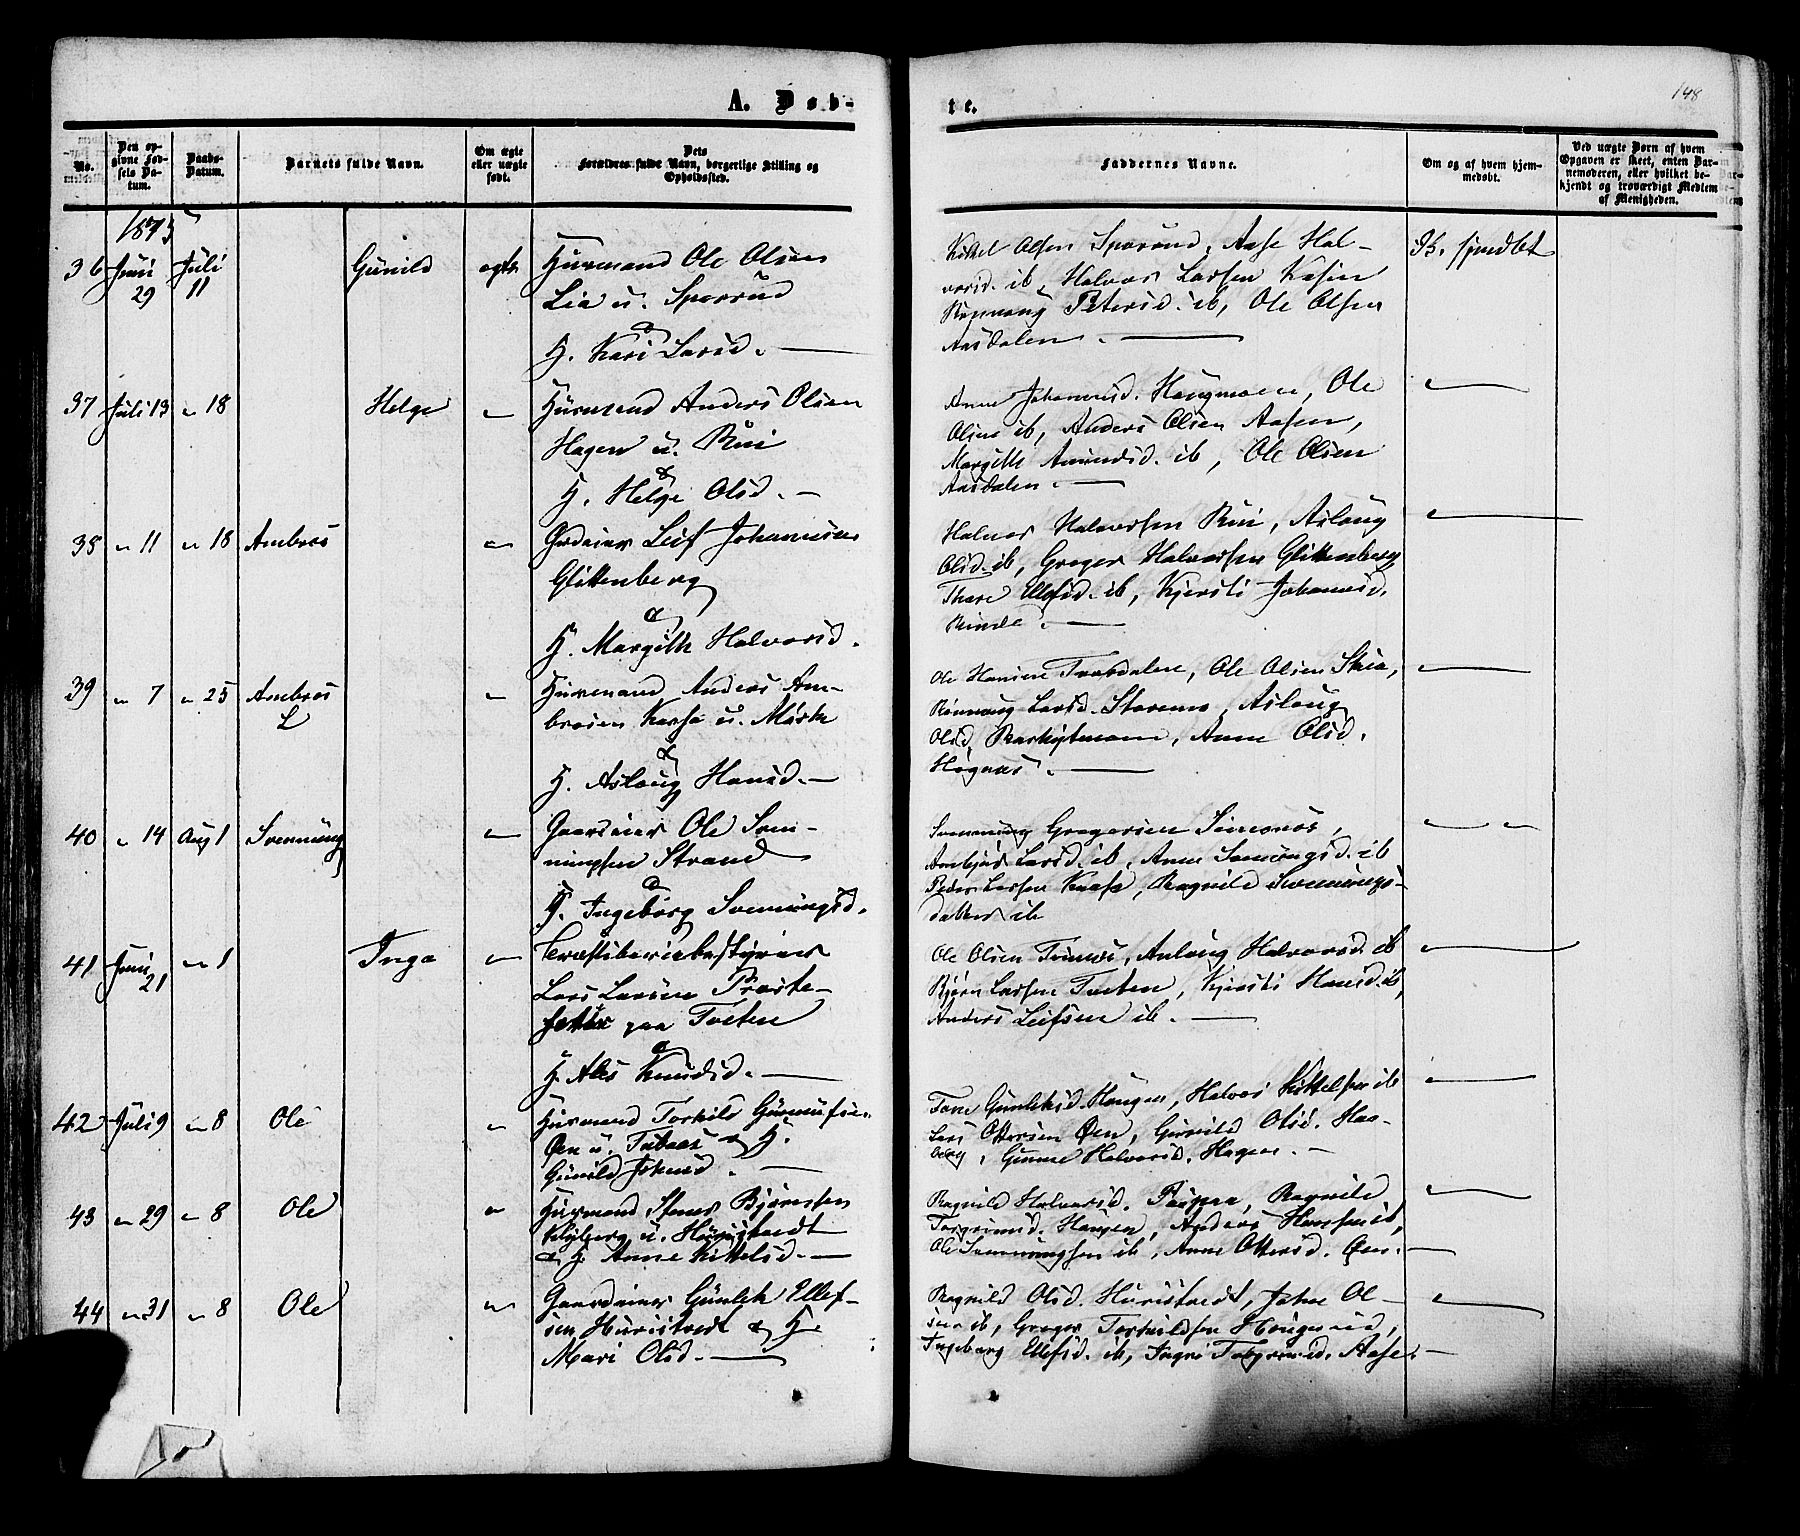 A. Døb-
te.
148
No.
Den opgivne Fødsels Datum.
Daabs-Datum.
Barnets fulde Navn.
Om ægte eller uægte født.
Dets Forældres fulde Navn, borgerlige Stilling og Opholdssted.
Faddernes Navne.
Om og af hvem hjemmedøbt.
Ved uægte Børn af hvem Opgaven er skeet, enten Barnemoderen, eller hvilket bekjendt og troværdigt Medlem af Menigheden.
1875
36 Juni 29 Juli 11 Gunild ægte Huusmand Ole Olsen
Lia u. Sporrud
&
H. Kari Larsd.
Kittel Olsen Sporrud, Aase Hal-
vorsd. ib, Halvor Larsen
Rønnaug Petersd. ib, Ole Olsen
Aasdalen.
37 Juli 13 " 18 Helge " Huusmand Anders Olsen
Hagen u. Rui
&
H. Helge Olsd.
Anne Johannesd. Haugmoen, Ole
Olsen ib, Anders Olsen Aasen,
Margith Amundsd. ib, Ole Olsen
Aasdalen.
38 " 11 " 18 Ambros " Grdeier Leif Johannesen
Glittenberg
&
H. Margith Halvorsd.
Halvor Halvorsen Rui, Aslaug
Olsd. ib, Greger Halvorsen Glittenberg
Thore Ellefsd. ib, Kjersti Johannesd.
Rinde.
39 " 7 " 25 Ambros " Huusmand Anders Am-
brosen Kaasa u. Mørk
&
H. Aslaug Hansd.
Ole Hansen Traadalen, Ole Olsen
Rønnaug Larsd. Storemo, Aslaug
Olsd. Anne Olsd.
Høgnas.
40 " 14 Aug 1 Svennung " Gaardeier Ole Sven-
nungsen Strand
&
H. Ingeborg Svennungsd.
Svennung Gregersen Simones,
Larsd. ib, Anne Svennungsd. ib
Peder Larsen Kaasa, Ragnild Svennungs-
datter ib
41 Juni 21 " 1 Inga "
Lars Larsen Præste-
paa Tveten
&
H. Knudsd.
Ole Olsen Halvorsd. ib
Bjørn Larsen Tveten, Kjersti Hansd. ib,
Anders Leifsen ib.
42 Juli 9 " 8 Ole " Huusmand Torkild Gunnufsen
Øen u. & H.
Gunild Johnsd.
Tone Gunleiksd. Haugen, Halvor Kittelsen ib
Lars Ottersen Øen, Gunild Olsd. Haa-
berg, Gunne Halvorsd. Hagen.
43 " 29 " 8 Ole " Huusmand Stener Bjørnsen
u. Huuistvedt
& H. Anne Kittelsd.
Ragnild Halvorsd. Ragnild
Torgrimsd. Haugen, Anders Hansen ib,
Ole Svennungsen ib, Anne Ottersd. Øen.
44 " 31 " 8 Ole " Gaardeier Gunlek Ellef-
sen Huuistvedt & H.
Mari Olsd.
Ragnild Olsd. Huuistvedt, John Ol-
sen ib, Greger Torkildsen
Ingeborg Ellefsd. ib, Ingri Torgrimsd. Aase.